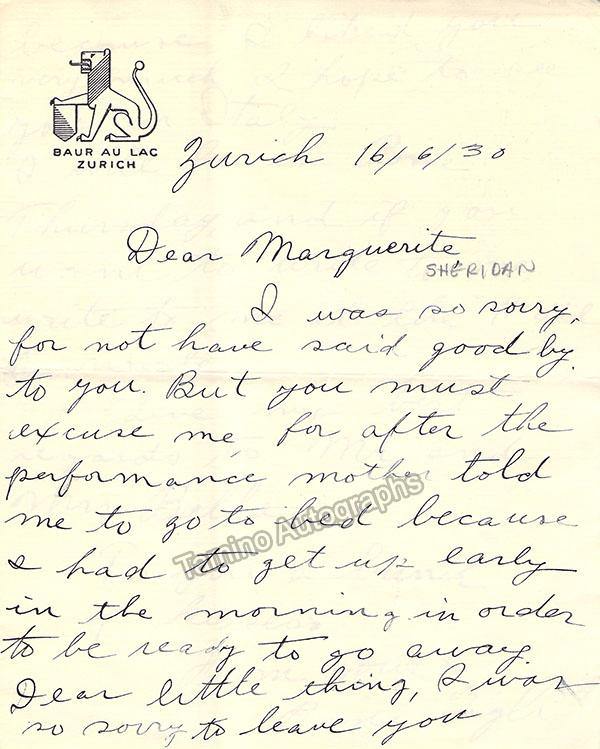 BAUR AU LAC
ZURICH
Zurich 16/6/30
Dear Marguerite
SHERIDAN
I was so sorry,
for not have said good by
to you. But you must
excuse me, for after the
performance mother told
me to go to bed because
I had to get up early
in the morning in order
to be ready to go away.
Dear little thing, I was
so sorry to leave you
Tamino Autographs